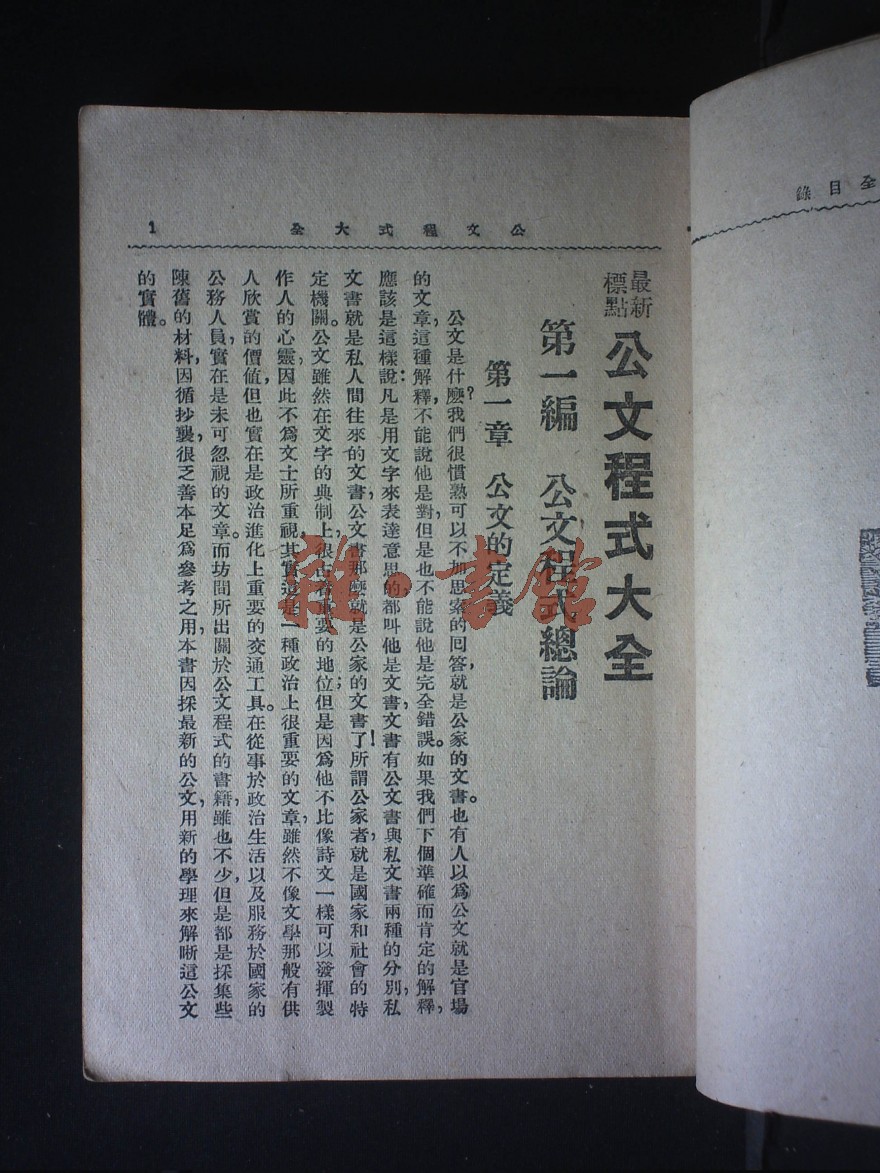 全目錄
公文程式大全
1
最新
標點
公文程式大全
第一編　公文程式總論
第一章　公文的定義
公文是什麼?我們很慣熟可以不加思索的回答,就是公家的文書。也有人以爲公文就是官場
的文章,這種解釋,不能說他是對但是也不能說他是完全錯誤。如果我們下個準確而肯定的解釋,
應該是這樣說:凡是用文字來表達意思的,都叫他是文書,文書有公文書與私文書兩種的分別,私
文書就是私人間往來的文書,公文書那麼就是公家的文書了!所謂公家者,就是國家和社會的特
定機關。公文雖然在文字的典制上,很占着重要的地位;但是因爲他不比像詩文一樣可以發揮製
作人的心靈,因此不爲文士所重視,其實這是一種政治上很重要的文章,雖然不像文學那般有供
人欣賞的價值,但也實在是政治進化上重要的交通工具。在從事於政治生活以及服務於國家的
公務人員,實在是未可忽視的文章。而坊間所出關於公文程式的書籍,雖也不少,但是都是採集些
陳舊的材料,因循抄襲,很乏善本足爲參考之用,本書因採最新的公文,用新的學理來解晰這公文
的實體。
雜·書館